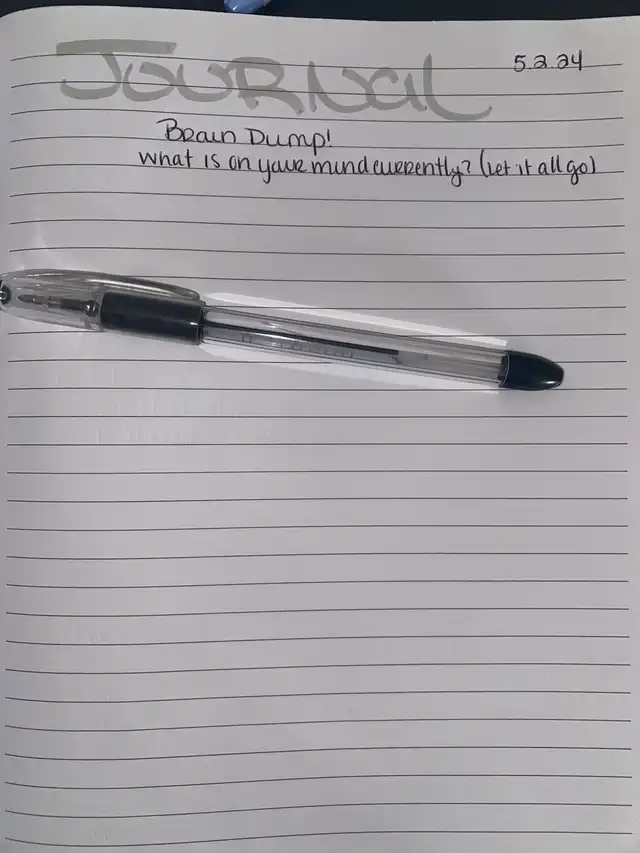 JOURNAL
5.2.24
Brain Dump!
What is on your mind currently? (Let it all go)